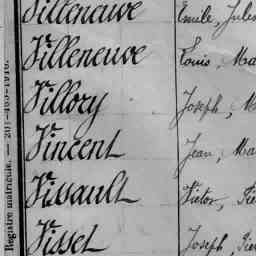 Villeneuve Emile, Jules
Villeneuve Louis, Ma
Villory Joseph, M
Vincent Jean, Ma
Vissault Victor, Pie
Visset Joseph, Pie
Registre matricule. — 201-465-1916.